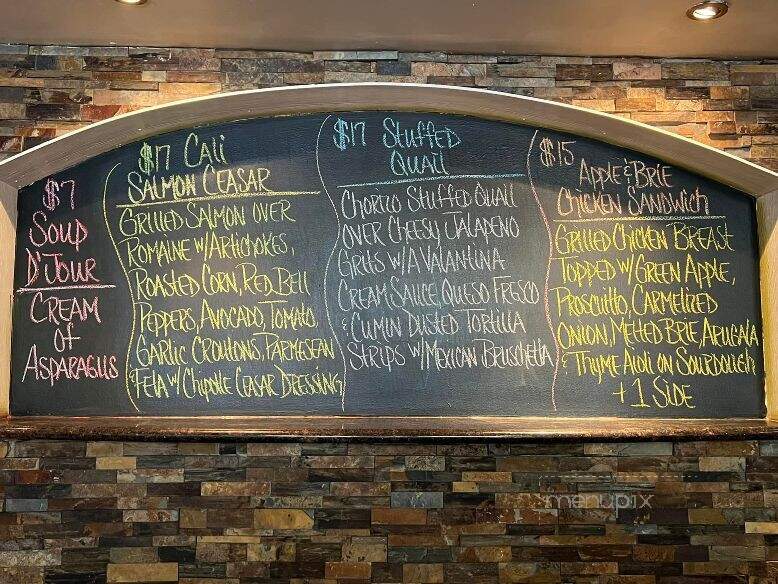 $7
Soup
D'Jour
Cream
of
Asparagus
$17 Cali
Salmon Ceasar
Grilled Salmon over
Romaine w/Artichokes,
Roasted Corn, Red Bell
Peppers, Avocado, Tomato,
Garlic Croutons, Parmesean
& Feta w/Chipotle Ceasar Dressing
$17 Stuffed
Quail
Chorizo Stuffed Quail
over Cheesy, Jalapeno
Grits w/A Valantina
Cream Sauce, Queso Fresco
& Cumin Dusted Tortilla
Strips w/Mexican Bruschetta
$15
Apple & Brie
Chicken Sandwich
Grilled Chicken Breast
Topped w/Green Apple,
Proscuitto, Carmelized
Onion, Melted Brie, Arugala
& Thyme Aioli on Sourdough
+ 1 Side
menupix